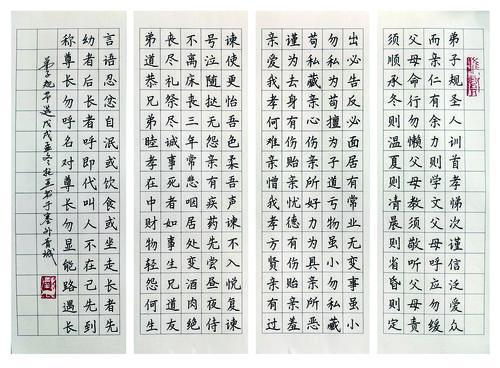 弟子规圣人训首孝悌次谨信泛爱众
而亲仁有余力则学文父母呼应勿缓
父母命行勿懒父母教须敬听父母责
须顺承冬则温夏则凊晨则省昏则定
出必告反必面居有常业无变事虽小
勿擅为苟擅为子道亏物虽小勿私藏
苟私藏亲心伤亲所好力为具亲所恶
谨为去身有伤贻亲忧德有伤贻亲羞
亲爱我孝何难亲憎我孝方贤亲有过
谏使更怡吾色柔吾声谏不入悦复谏
号泣随挞无怨亲有疾药先尝昼夜侍
不离床丧三年常悲咽居处变酒肉绝
丧尽礼祭尽诚事死者如事生兄道友
弟道恭兄弟睦孝在中财物轻怨何生
言语忍忿自泯或饮食或坐走长者先
幼者后长者呼即代叫人不在己先到
称尊长勿呼名对尊长勿显能路遇长
弟子规节选戊戌孟冬于塞外青城